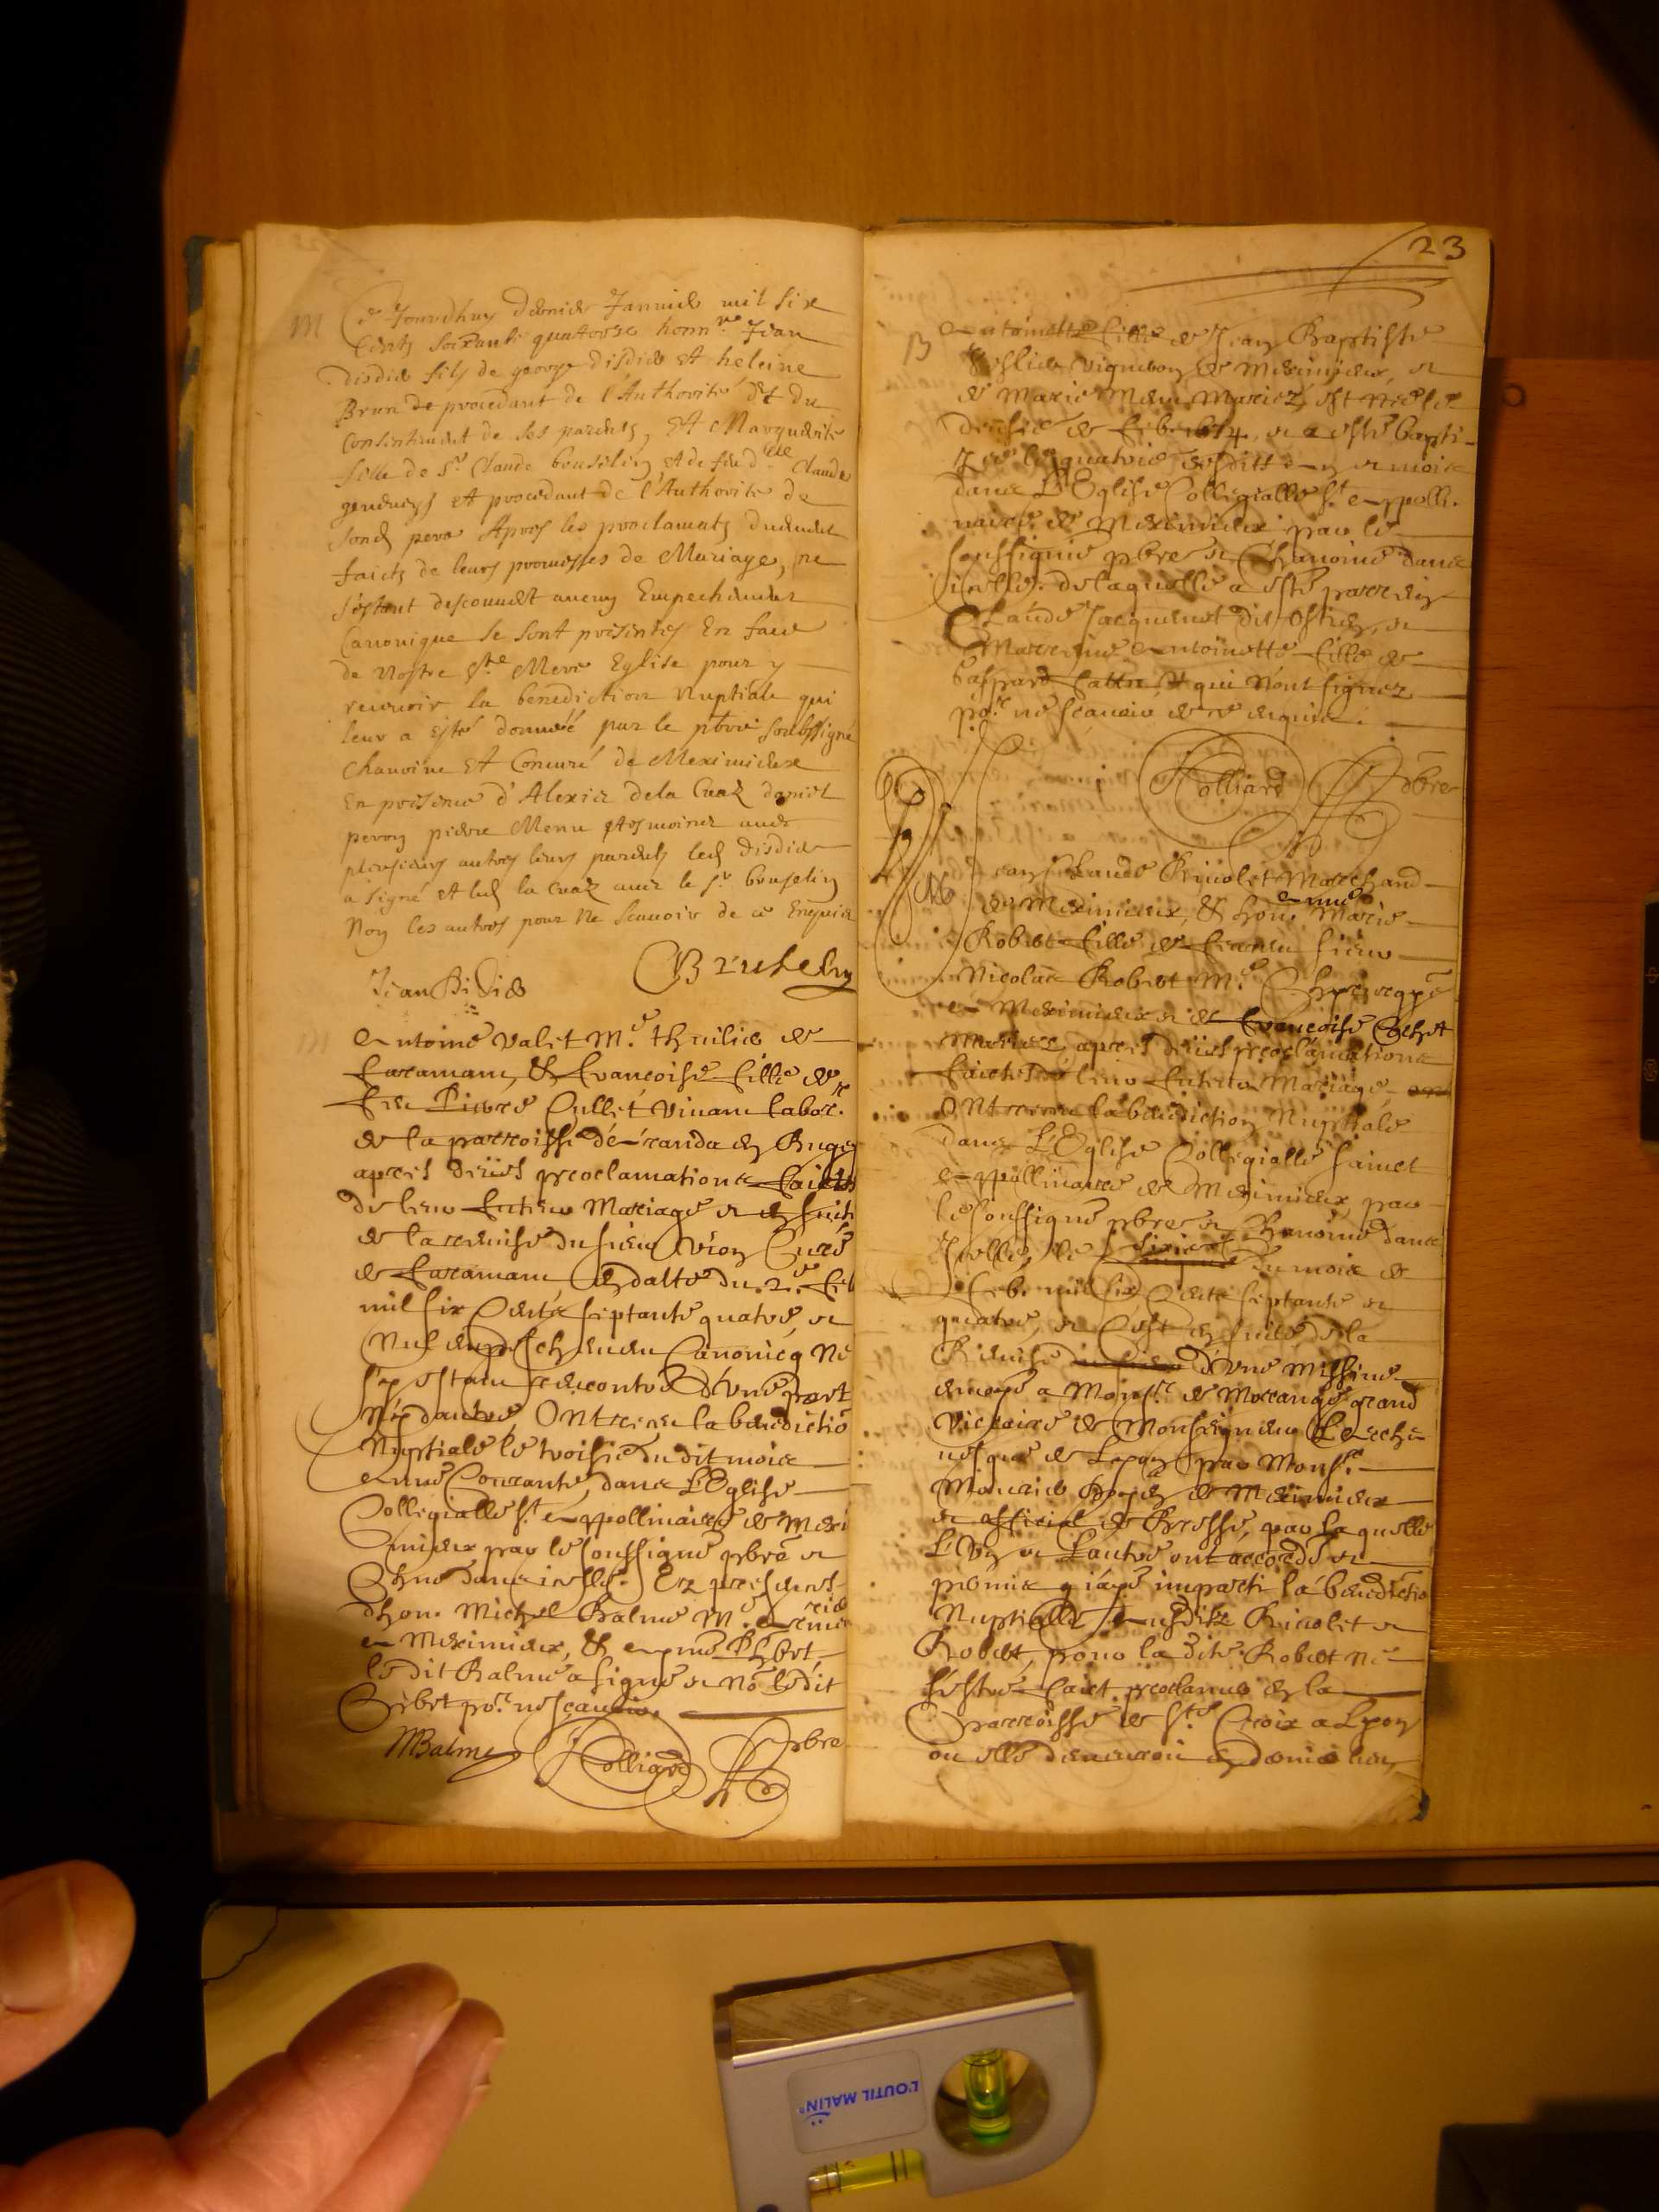 M Ce Jourdhuy dernier Janvier mil six
Cents soixante quatorze honn.re Jean
disdier fils de george disdier et heleine
Brun de procedant de l'Authorité et du
Consentement de ses parents, Et Marguerite
fille de Sr Claude bouselin et de feu d.lle Claude
et procedant de l'Authorite de
sond pere Apres les proclamats duement
faicts de leurs promesses de Mariage, ne
s'estant descouvert aucun Empechement
Canonique se sont presentes En face
de nostre Ste Mere Eglise pour y
recevoir la benediction Nuptiale qui
leur a esté donnéé par le pbre soubssigné
Chanoine Et Concuré de Meximieux
En presence d'Alexis dela Cuaz daniel
peron pierre Menu tesmoins avec
plusieurs autres leurs parents led disdier
a signé et led la Cuaz avec le sr bouselin
Non les autres pour ne scavoir de ce Enquis
Jean Disdier
M Antoine Valet M.e thuilier de
Faramans, & Francoise fille de
feu Pierre Cullet vivant labor.r
de la parroisse d' en Bugey
apres deües proclamations faictes
de leur futeur Mariage et en suite
de la remise du sieur Vion Curé
de Faramans en datte du 2.e feb
mil six Cents septante quatre, et
Nul empeschement Canonicq ne
s'y estant rencontré d'une part
Ny dautre, Ont receu la benedictiõ
Nuptiale le troisie du dit mois
Anné Courante, dans L'Eglise
Collegialle St Appollinaire de Mexi
mieux par le soussigné pbre et
Chne dans icelle. Ez presences
dhon. Michel Balme M.e
A Meximieux, &
le dit Balme a signé et nõ ledit
po.r ne scavoir.
MBalme Colliard pbre
23
B Antoinette fille de Jean Baptiste
vigneron de Meximieux, et
de Marie Menu Mariez, est née le
de feb. 1674, et a esté bapti-
zée le quatrie des dits an et mois
dans L'Eglise Collegialle St Appolli-
naire de Meximieux par le
soussigné pbre et Chanoine dans
icelle. de laquelle a esté parrein
Claude Jacquemet dit Ostier, et
Marreine Antoinette fille de
Gaspard qui n'ont signez
po.r ne scavoir de ce enquis.
Colliard pbre
M Jean Claude Bricolet Marchand
de Meximieux, & hon. Anne Marie
Robert fille de feu sieur
Nicolas Robert M.e
A Meximieux et de Francoise Cochet
Mariez, apres deües proclamations
faictes de leur futeur Mariage
ont receu la benediction Nuptiale
dans L'Eglise Collegialle Sainct
Appollinaire de Meximieux, par
le soussigné pbre et Chanoine dans
Icelle, le sixie du mois de
feb. mil six Cents septante et
quatre, et C'est en suite de la
Remise d'une Missive
envoyé a Mons.r de Morange grand
Viccaire de Monseigneur L'Arche-
vesque de Lyon par Mons.r
Mouries Doyen de Meximieux
et official de Bresse, par laquelle
L'Un et L'autre ont accordé et
promis q i'aye imparti la benedictiõ
Nuptialle Ausdits Bricolet et
Robert, pour la dite Robert ne
s'estre faict proclamer en la
Parroisse de Ste Croix a Lyon
ou elle demeuroit en dernier lieu,
L'OUTIL MALIN